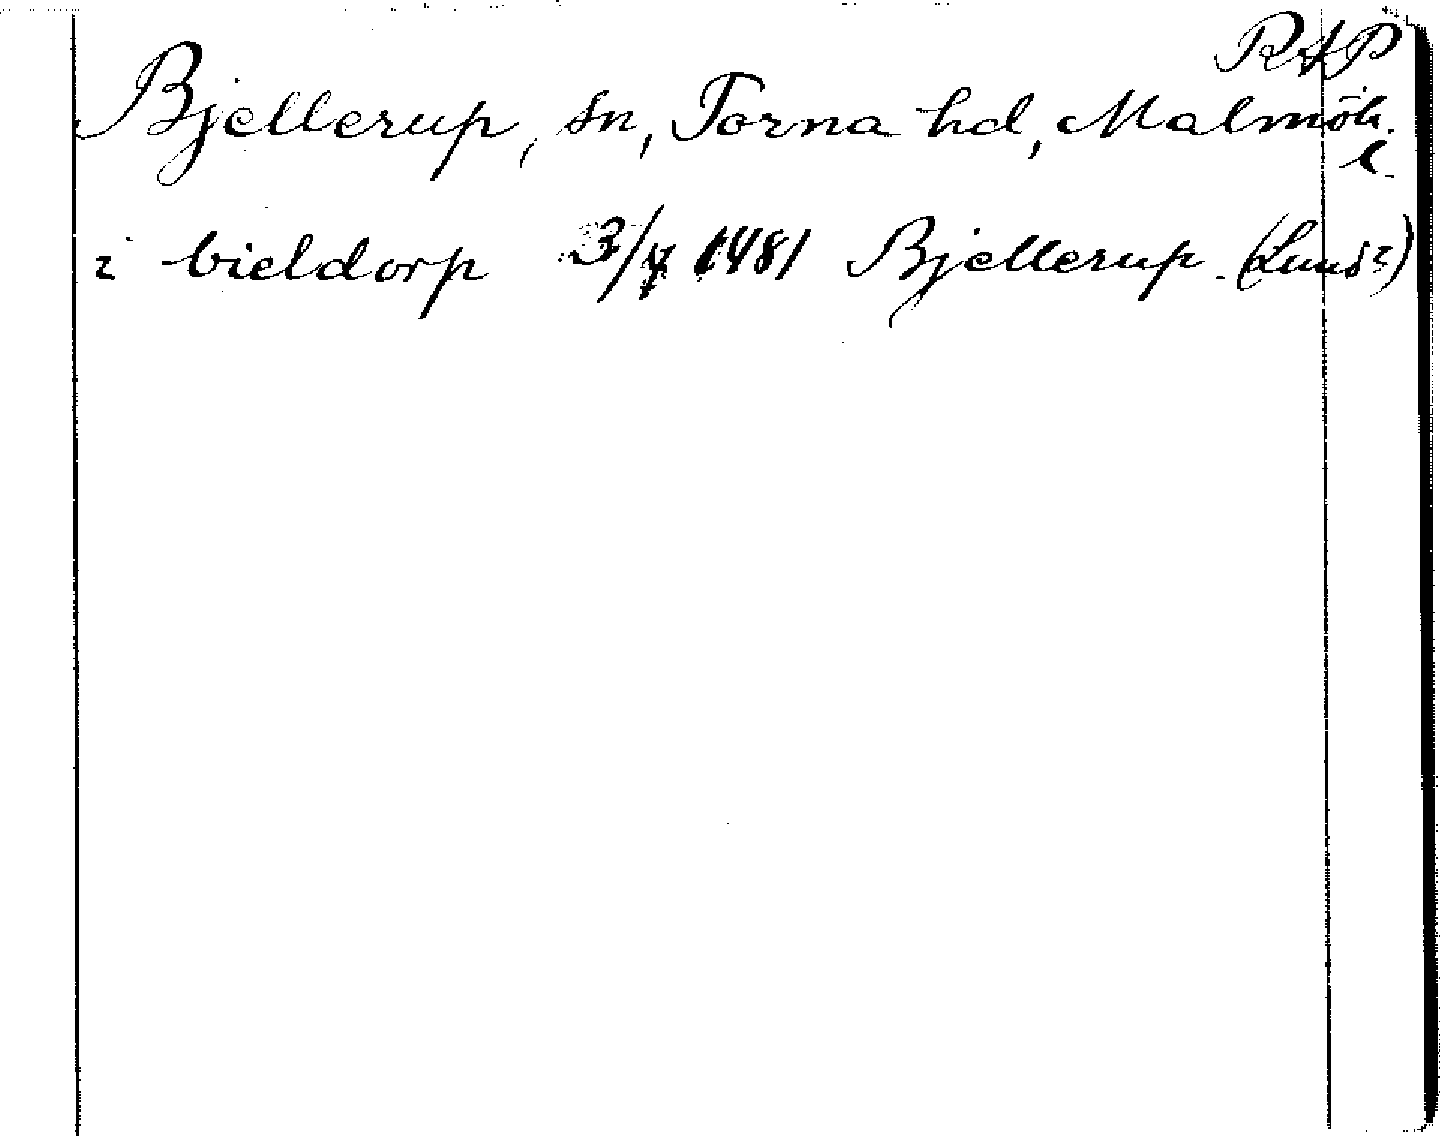 RAP
Bjellerup, sn, Torna hd, Malmöh.
l.
i bieldorp 3/7 1481 Bjellerup. (Lunds)